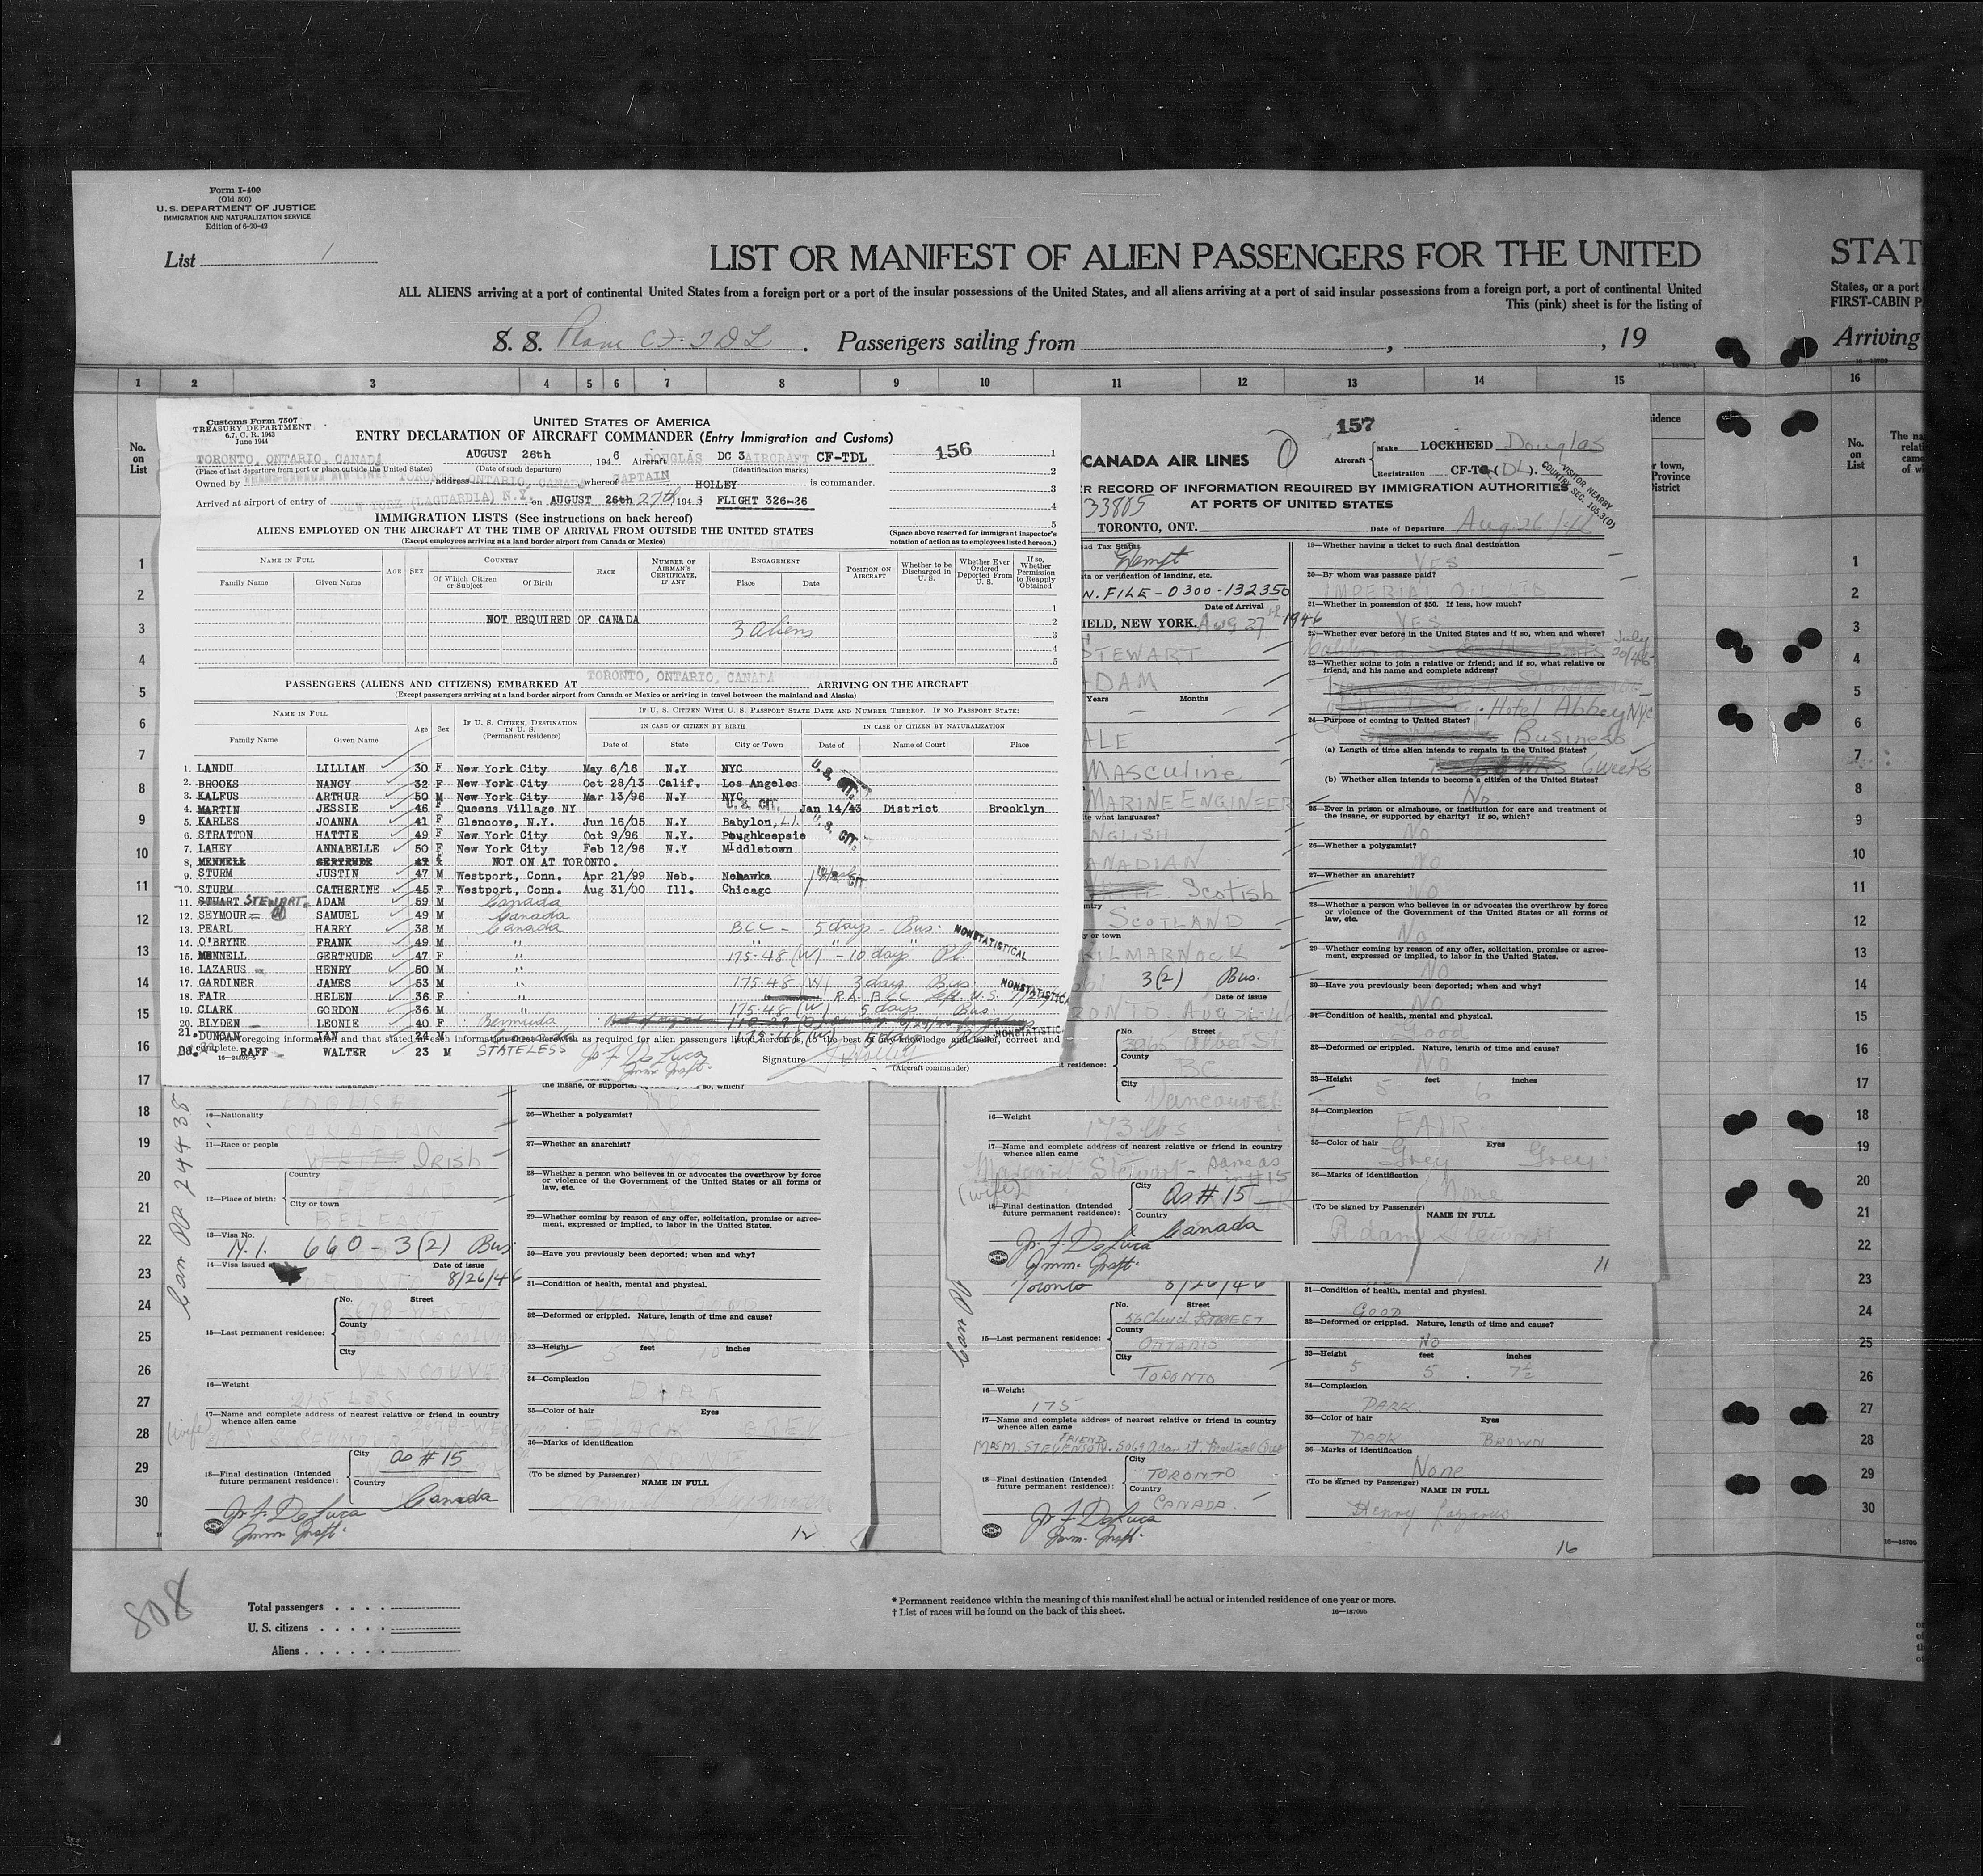 Form I-400
(Old 500)
U. S. DEPARTMENT OF JUSTICE
IMMIGRATION AND NATURALIZATION SERVICE
Edition of 6-20-42
List 1
LIST OR MANIFEST OF ALIEN PASSENGERS FOR THE UNITED
STAT
ALL ALIENS arriving at a port of continental United States from a foreign port or a port of the insular possessions of the United States, and all aliens arriving at a port of said insular possessions from a foreign port, a port of continental United
States, or a port
This (pink) sheet is for the listing of
FIRST-CABIN P
S. S. Plane CF-TDL. Passengers sailing from , , 19
Arriving
1 2 3 4 5 6 7 8 9 10 11 12 13 14 15 16
No. on List
Customs Form 7507
TREASURY DEPARTMENT
6.7, C. R. 1943
June 1944
UNITED STATES OF AMERICA
ENTRY DECLARATION OF AIRCRAFT COMMANDER (Entry Immigration and Customs)
156
TORONTO, ONTARIO, CANADA AUGUST 26th 1946 Aircraft DOUGLAS DC 3 AIRCRAFT CF-TDL
(Place of last departure from port or place outside the United States) (Date of such departure) (Identification marks)
Owned by TRANS-CANADA AIR LINES address TORONTO, ONTARIO, CANADA whereof CAPTAIN HOLLEY is commander.
Arrived at airport of entry of NEW YORK (LAGUARDIA) N.Y. on AUGUST 26th 27th 194 FLIGHT 326-26
IMMIGRATION LISTS (See instructions on back hereof)
ALIENS EMPLOYED ON THE AIRCRAFT AT THE TIME OF ARRIVAL FROM OUTSIDE THE UNITED STATES
(Except employees arriving at a land border airport from Canada or Mexico)
(Space above reserved for immigrant inspector's notation of action as to employees listed hereon.)
NAME IN FULL AGE SEX COUNTRY RACE NUMBER OF AIRMAN'S CERTIFICATE, IF ANY ENGAGEMENT POSITION ON AIRCRAFT Whether to be Discharged in U. S. Whether Ever Ordered Deported From U. S. If so, Whether Permission to Reapply Obtained
Family Name Given Name Of Which Citizen or Subject Of Birth Place Date
NOT REQUIRED OF CANADA
3 aliens
PASSENGERS (ALIENS AND CITIZENS) EMBARKED AT TORONTO, ONTARIO, CANADA ARRIVING ON THE AIRCRAFT
(Except passengers arriving at a land border airport from Canada or Mexico or arriving in travel between the mainland and Alaska)
NAME IN FULL Age Sex IF U. S. CITIZEN, DESTINATION IN U. S. (Permanent residence) IF U. S. CITIZEN WITH U. S. PASSPORT STATE DATE AND NUMBER THEREOF. IF NO PASSPORT STATE:
IN CASE OF CITIZEN BY BIRTH IN CASE OF CITIZEN BY NATURALIZATION
Family Name Given Name Date of State City or Town Date of Name of Court Place
1. LANDU LILLIAN 30 F New York City May 6/16 N.Y NYC U. S. CIT.
2. BROOKS NANCY 32 F New York City Oct 28/13 Calif. Los Angeles
3. KALFUS ARTHUR 50 M New York City Mar 13/96 N.Y NYC
4. MARTIN JESSIE 46 F Queens Village NY U. S. CIT. Jan 14/43 District Brooklyn
5. KARLES JOANNA 41 F Glencove, N.Y. Jun 16/05 N.Y Babylon, L.I. U. S. CIT.
6. STRATTON HATTIE 49 F New York City Oct 9/96 N.Y. Poughkeepsie
7. LAHEY ANNABELLE 50 F New York City Feb 12/96 N.Y Middletown
8. MENNELL GERTRUDE 47 NOT ON AT TORONTO.
9. STURM JUSTIN 47 M Westport, Conn. Apr 21/99 Neb. Nehawka
10. STURM CATHERINE 45 F Westport, Conn. Aug 31/00 Ill. Chicago
11. STUART STEWART ADAM 59 M Canada
12. SEYMOUR SAMUEL 49 M Canada
13. PEARL HARRY 38 M Canada BCC - 5 days - Bus. NONSTATISTICAL
14. O'BRYNE FRANK 49 M " " " "
15. MENNELL GERTRUDE 47 F " 175.48 (W) - 10 days Pl.
16. LAZARUS HENRY 50 M "
17. GARDINER JAMES 53 M " 175.48 (W) 3 days Bus. NONSTATISTICAL
18. FAIR HELEN 36 F "
19. CLARK GORDON 36 M " 175.48 (W) 5 days Bus.
20. BLYDEN LEONIE 40 F Bermuda
21. DUNCAN IAN 24 M Canada 175.48 (W) 5 days Bus. NONSTATISTICAL
RAFF WALTER 23 M STATELESS
Jos. F. DeLuca
Imm. Inspt.
Signature
(Aircraft commander)
157
CANADA AIR LINES
Aircraft Make LOCKHEED Douglas
Registration CF-T (DL).
VISITOR NEARBY COUNTRY SEC. 105.3(D)
R RECORD OF INFORMATION REQUIRED BY IMMIGRATION AUTHORITIES
AT PORTS OF UNITED STATES
33805
TORONTO, ONT. Date of Departure Aug. 26/46
ad Tax Status
Exempt
ta or verification of landing, etc.
N. FILE - 0300-132350
Date of Arrival
IELD, NEW YORK. Aug 27 1946
STEWART
ADAM
Years Months
ALE
MASCULINE
MARINE ENGINEER
te what languages?
ENGLISH
CANADIAN
Scotish
SCOTLAND
KILMARNOCK
3(2) Bus.
Date of issue
TORONTO Aug 26-46
No. Street
3965 Albert St
County
BC
City
Vancouver
16—Weight
173 lbs
17—Name and complete address of nearest relative or friend in country whence alien came
Margaret Stewart - Same as in #15
(wife)
18—Final destination (Intended future permanent residence):
City As #15
Country Canada
Jos. F. DeLuca
Imm. Inspt.
19—Whether having a ticket to such final destination
YES
20—By whom was passage paid?
IMPERIAL OIL LTD
21—Whether in possession of $50. If less, how much?
YES
22—Whether ever before in the United States and if so, when and where?
July 20/46
23—Whether going to join a relative or friend; and if so, what relative or friend, and his name and complete address?
Hotel Abbey NYC
24—Purpose of coming to United States?
Business
(a) Length of time alien intends to remain in the United States?
6 weeks
(b) Whether alien intends to become a citizen of the United States?
No
25—Ever in prison or almshouse, or institution for care and treatment of the insane, or supported by charity? If so, which?
No
26—Whether a polygamist?
No
27—Whether an anarchist?
No
28—Whether a person who believes in or advocates the overthrow by force or violence of the Government of the United States or all forms of law, etc.
No
29—Whether coming by reason of any offer, solicitation, promise or agreement, expressed or implied, to labor in the United States.
No
30—Have you previously been deported; when and why?
No
31—Condition of health, mental and physical.
Good
32—Deformed or crippled. Nature, length of time and cause?
No
33—Height 5 feet 6 inches
34—Complexion
FAIR
35—Color of hair Eyes
Grey Grey
36—Marks of identification
None
(To be signed by Passenger) NAME IN FULL
Adam Stewart
11
Can PP 244438
ENGLISH
10—Nationality
CANADIAN
11—Race or people
WHITE IRISH
12—Place of birth:
Country
City or town
BELFAST
13—Visa No.
N.I. 660 - 3(2) Bus
14—Visa issued a Date of issue
8/26/46
15—Last permanent residence:
No. Street
County
City
VANCOUVER
16—Weight
215 LBS
17—Name and complete address of nearest relative or friend in country whence alien came
(wife)
18—Final destination (Intended future permanent residence):
City As #15
Country Canada
Jos. F. DeLuca
Imm. Inspt.
the insane, or supported by charity? If so, which?
NO
26—Whether a polygamist?
NO
27—Whether an anarchist?
28—Whether a person who believes in or advocates the overthrow by force or violence of the Government of the United States or all forms of law, etc.
29—Whether coming by reason of any offer, solicitation, promise or agreement, expressed or implied, to labor in the United States.
30—Have you previously been deported; when and why?
31—Condition of health, mental and physical.
32—Deformed or crippled. Nature, length of time and cause?
NO
33—Height 5 feet 10 inches
34—Complexion
DARK
35—Color of hair Eyes
BLACK GREY
36—Marks of identification
NONE
(To be signed by Passenger) NAME IN FULL
12
Can PP
Toronto 8/26/46
15—Last permanent residence:
No. Street
56 Church STREET
County
ONTARIO
City
TORONTO
16—Weight
175
17—Name and complete address of nearest relative or friend in country whence alien came
FRIEND
Mrs M. STEVENSON. 5069 Adam St. Montreal Que
18—Final destination (Intended future permanent residence):
City TORONTO
Country CANADA.
Jos. F. DeLuca
Imm. Inspt.
31—Condition of health, mental and physical.
GOOD
32—Deformed or crippled. Nature, length of time and cause?
NO
33—Height feet inches
5 5 . 7½
34—Complexion
DARK.
35—Color of hair Eyes
DARK BROWN
36—Marks of identification
None
(To be signed by Passenger) NAME IN FULL
Henry Lazarus
16
808
Total passengers
U. S. citizens
Aliens
* Permanent residence within the meaning of this manifest shall be actual or intended residence of one year or more.
† List of races will be found on the back of this sheet.
16—18709b